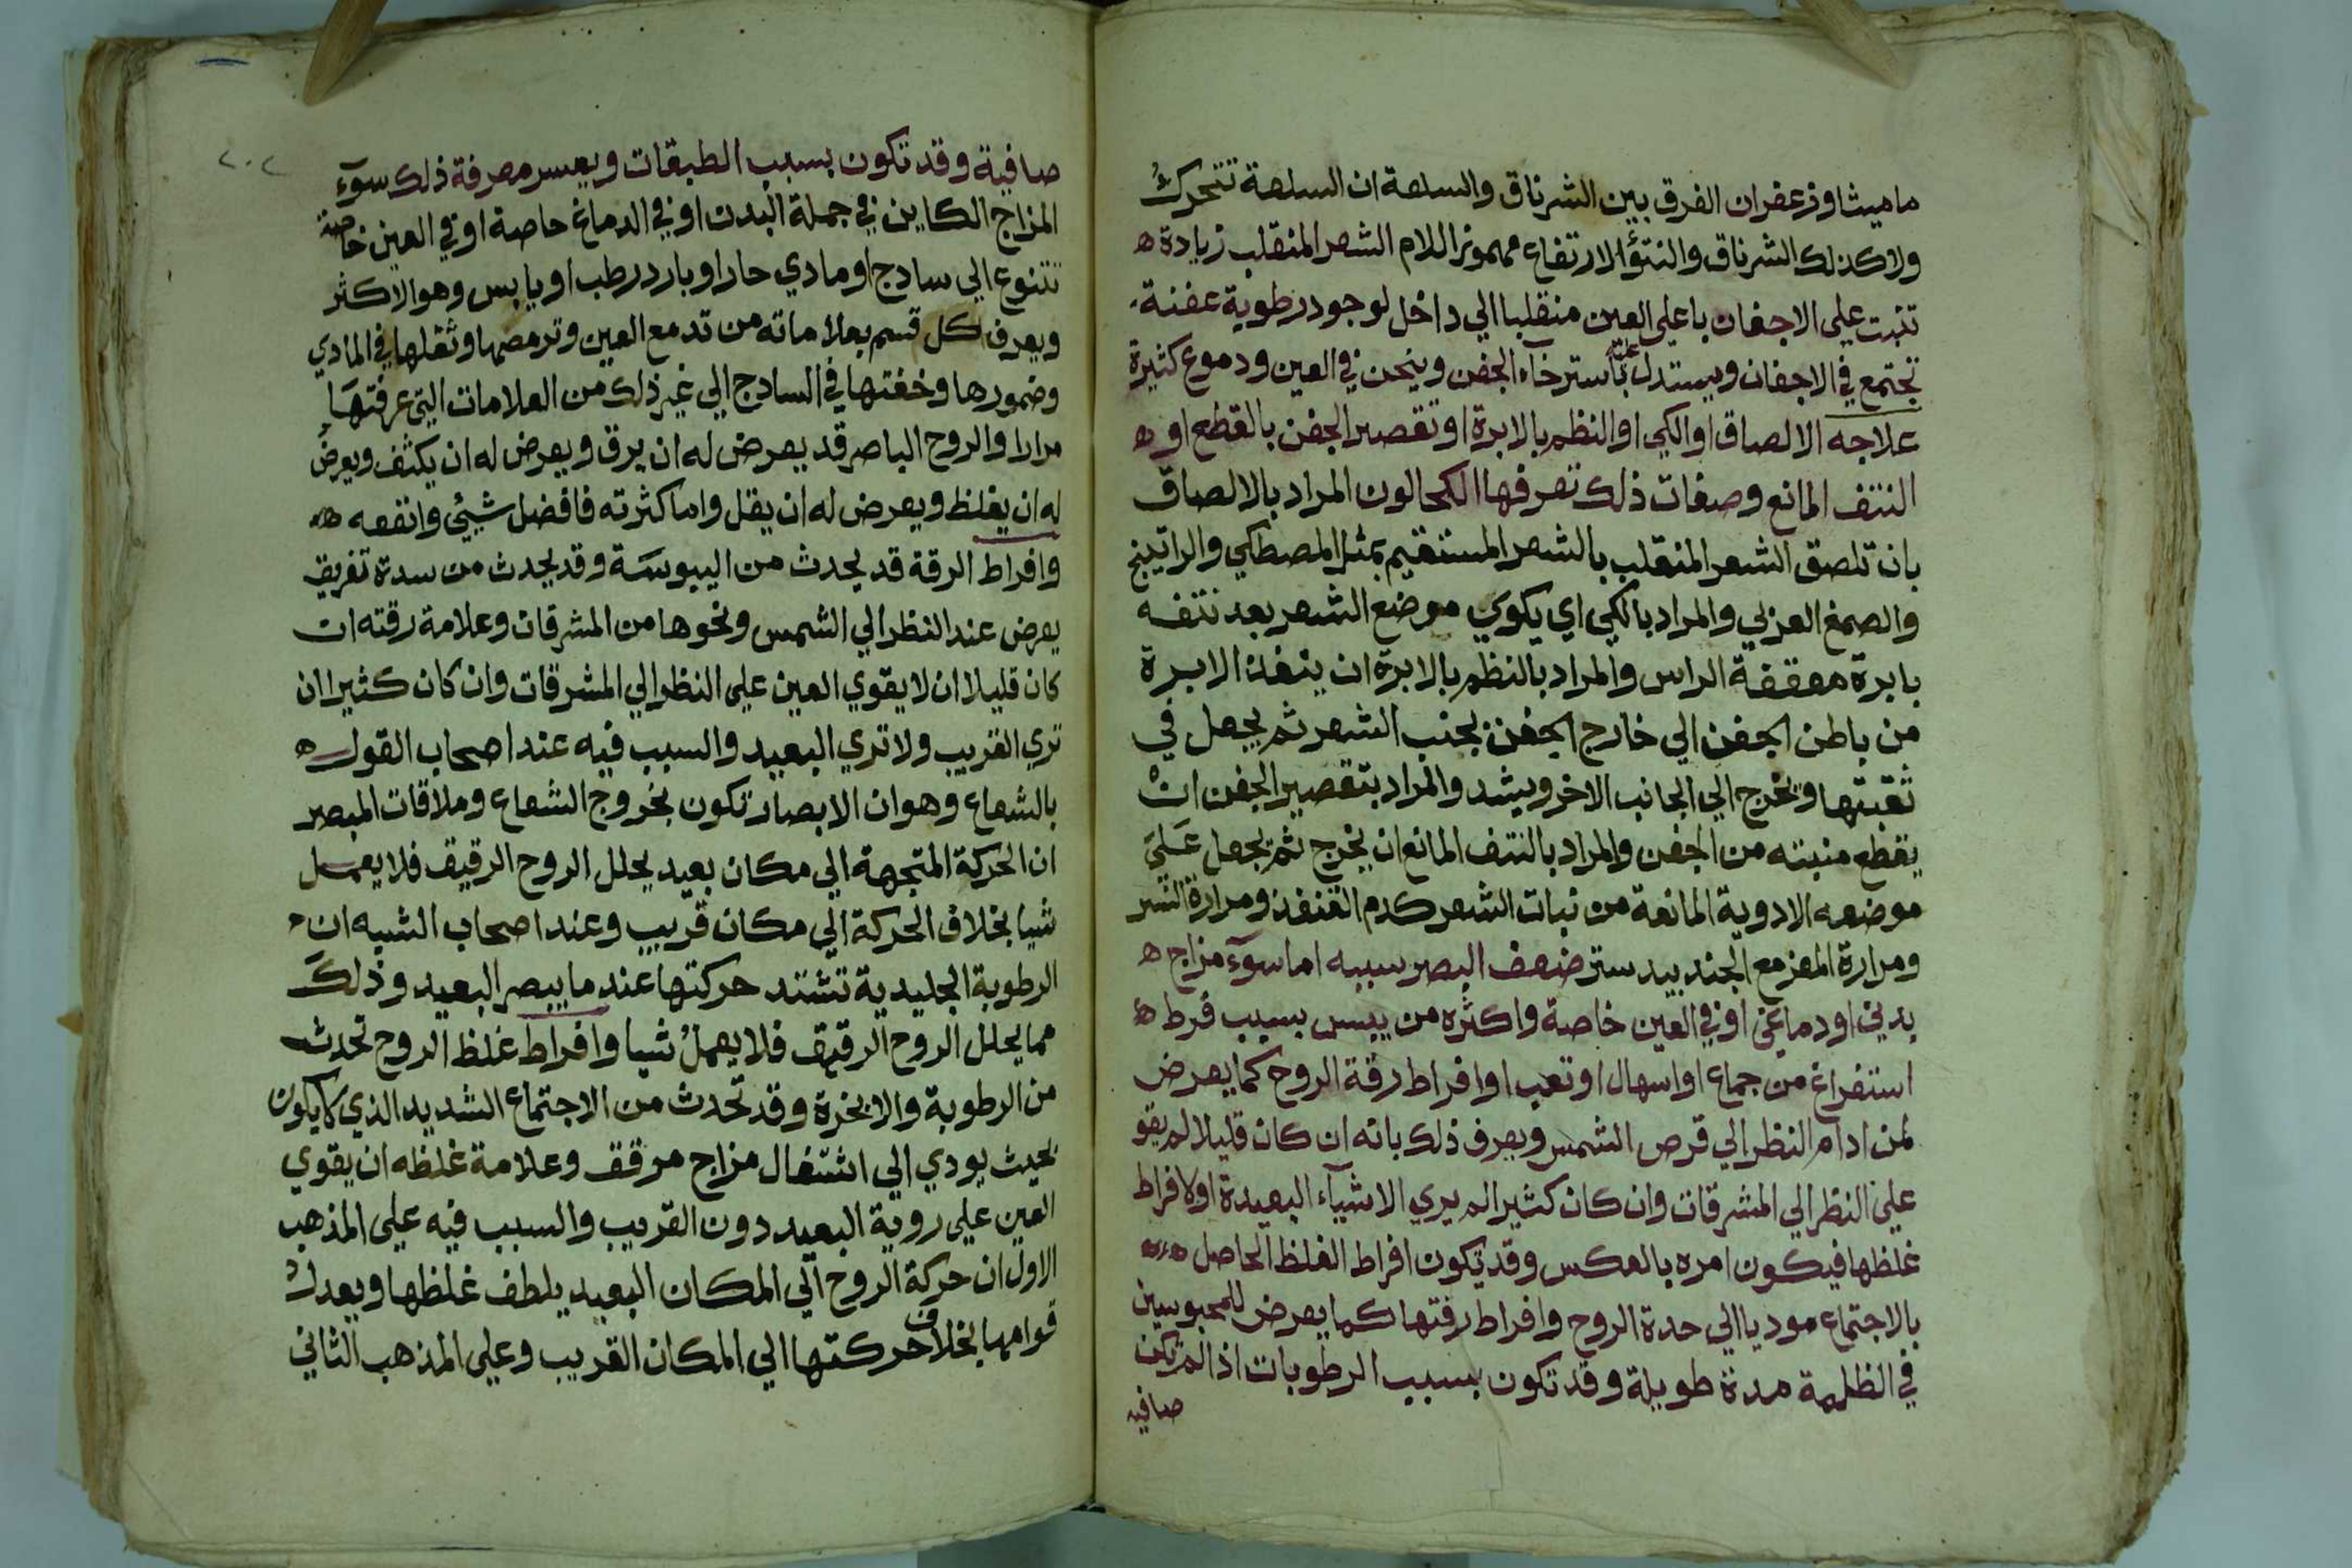 ماميثا وزعفران الفرق بين الشرناق والسلعة ان السلعة تتحرك
ولا كذلك الشرناق والنتؤ الارتفاع مهموز اللام الشعر المنقلب زيادة ه
تنبت علي الاجفان باعلي العين منقلبا الي داخل لوجود رطوبة عفنة
تجتمع في الاجفان ويستدل عليه باسترخآء الجفن وينخس في العين ودموع كثيرة
علاجه الالصاق او الكي او النظم بالابرة او تقصير الجفن بالقطع او ه
النتف المانع وصفات ذلك تعرفها الكحالون المراد بالالصاق
بان تلصق الشعر المنقلب بالشعر المستقيم بمثل المصطكي والراتينج
والصمغ العربي والمراد بالكي اي يكوي موضع الشعر بعد نتفه
بابرة معقفة الراس والمراد بالنظم بالابرة ان ينفذ الابرة
من باطن الجفن الي خارج الجفن بجنب الشعر ثم يجعل في
ثقبتها ويخرج الي الجانب الاخر ويشد والمراد بتقصير الجفن ان
يقطع منبته من الجفن والمراد بالنتف المانع ان يخرج ثم يجعل علي
موضعه الادوية المانعة من نبات الشعر كدم القنفذ ومرارة النسر
ومرارة المعز مع الجند بيد ستر ضعف البصر سببه اما سوء مزاج ه
بدني او دماغي او في العين خاصة واكثره من يبس بسبب فرط ه
استفراغ من جماع او اسهال او تعب او افراط رقة الروح كما يعرض
لمن ادام النظر الي قرص الشمس ويعرف ذلك بانه ان كان قليلا لم يقو
علي النظر الي المشرقات وان كان كثيرا لم يري الاشيآء البعيدة او لافراط
غلظها فيكون امره بالعكس وقد يكون افراط الغلظ الحاصل ه
بالاجتماع موديا الي حدة الروح وافراط رقتها كما يعرض للمحبوسين
في الظلمة مدة طويلة وقد تكون بسبب الرطوبات اذا لم تكن
صافيه
٢٠٢
صافية وقد تكون بسبب الطبقات ويعسر معرفة ذلك سوء
المزاج الكاين في جملة البدن او في الدماغ خاصة او في العين خاصة
تتنوع الي سادج او مادي حار او بارد رطب او يابس وهو الاكثر
ويعرف كل قسم بعلاماته من تدمع العين وترمصها وثقلها في المادي
وضمورها وخفتها في السادج الي غير ذلك من العلامات التي عرفتها
مرارا والروح الباصر قد يعرض له ان يرق ويعرض له ان يكثف ويعرض
له ان يغلظ ويعرض له ان يقل واما كثرته فافضل شيئ وانفعه ه
وافراط الرقة قد يحدث من اليبوسة وقد يحدث من سدة تفريق
يعرض عند النظر الي الشمس ونحوها من المشرقات وعلامة رقته ان
كان قليلا ان لا يقوي العين علي النظر الي المشرقات وان كان كثيرا ان
تري القريب ولا تري البعيد والسبب فيه عند اصحاب القول ه
بالشعاع وهو ان الابصار تكون بخروج الشعاع وملاقات المبصر
ان الحركة المتجهة الي مكان بعيد يحلل الروح الرقيق فلا يعمل
شيا بخلاف الحركة الي مكان قريب وعند اصحاب الشبه ان
الرطوبة الجليدية تشتد حركتها عند ما يبصر البعيد وذلك
مما يحلل الروح الرقيق فلا يعمل شيا وافراط غلظ الروح تحدث
من الرطوبة والابخرة وقد تحدث من الاجتماع الشديد الذي لا يكون
بحيث يودي الي اشتغال مزاج مرقق وعلامة غلظه ان يقوي
العين علي روية البعيد دون القريب والسبب فيه علي المذهب
الاول ان حركة الروح الي المكان البعيد يلطف غلظها ويعدل
قوامها بخلاف حركتها الي المكان القريب وعلي المذهب الثاني